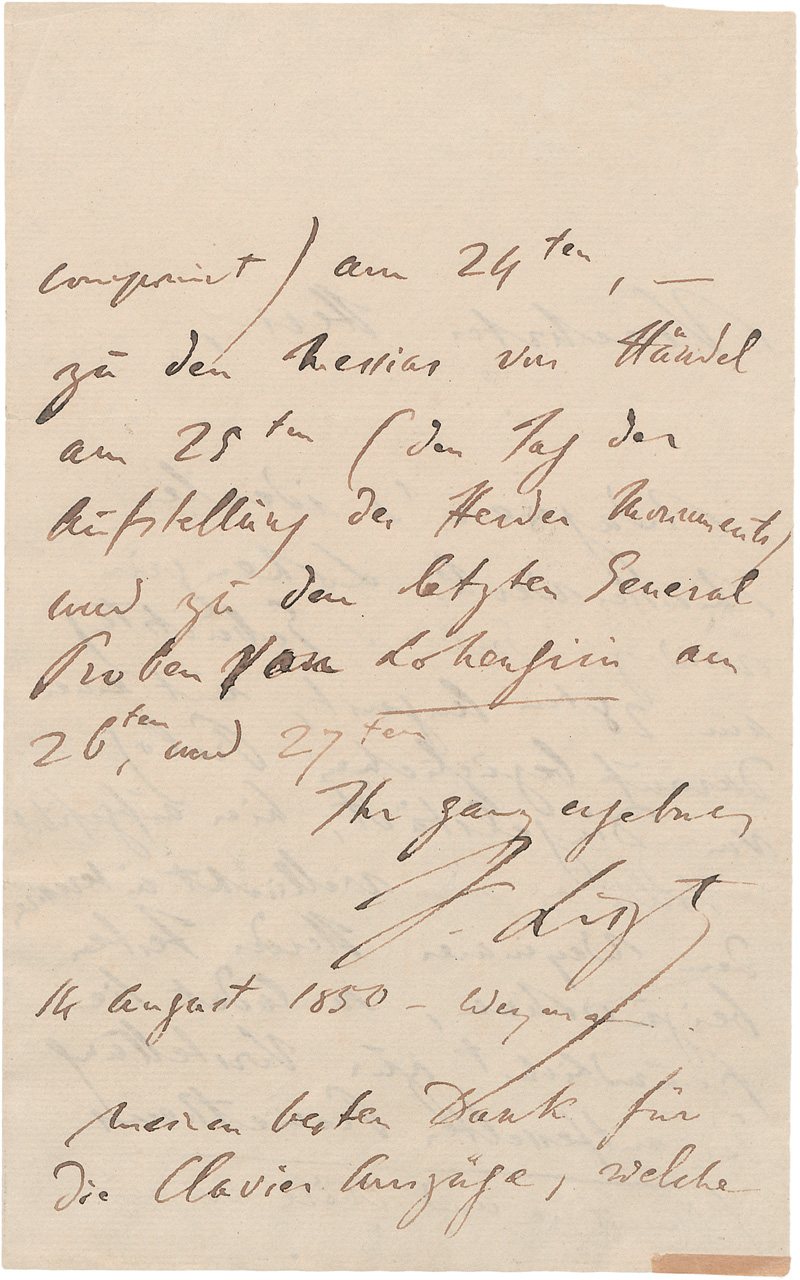 componirt) am 24ten, —
zu den Messias von Händel
am 25ten (den Tag der
Aufstellung des Herder Monuments)
und zu den letzten General
Proben von Lohengrin am
26ten, und 27ten
Ihr ganz ergebner
F. Liszt
14 August 1850 – Weymar
Meinen besten Dank für
die Clavier Auszüge, welche